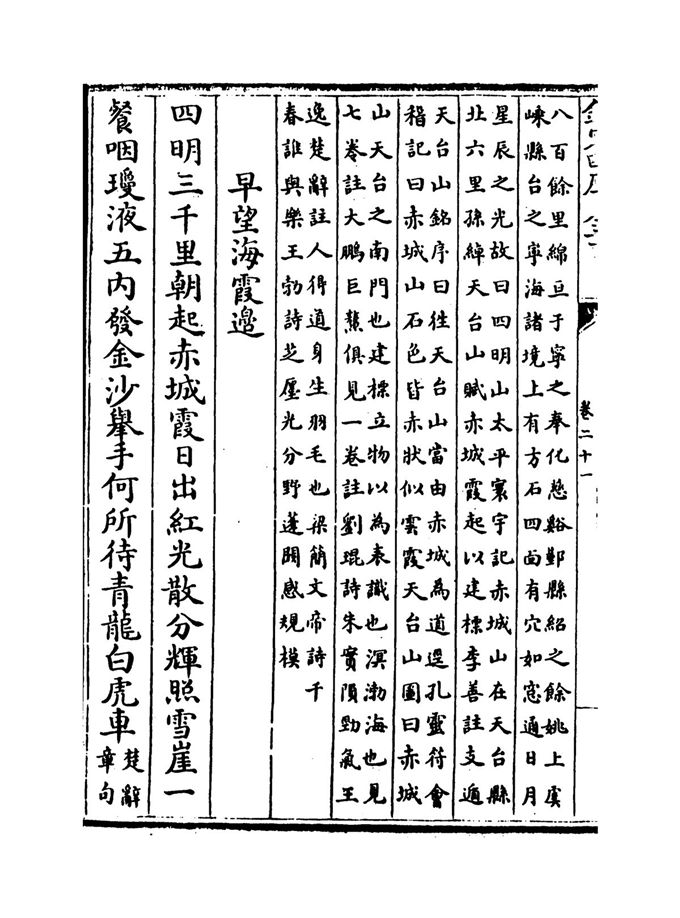 卷二十一
八百餘里綿亘于寧之奉化慈谿鄞縣紹之餘姚上虞
嵊縣台之寧海諸境上有方石四面有穴如窓通日月
星辰之光故曰四明山太平寰宇記赤城山在天台縣
北六里孫綽天台山賦赤城霞起以建標李善註支遁
天台山銘序曰徃天台山當由赤城為道逕孔靈符會
稽記曰赤城山石色皆赤狀似雲霞天台山圖曰赤城
山天台之南門也建標立物以為表識也溟渤海也見
七卷註大鵬巨鰲俱見一卷註劉琨詩朱實隕勁氣王
逸楚辭註人得道身生羽毛也梁簡文帝詩千
春誰與樂王勃詩芝廛光分野蓬闕感規模
早望海霞邊
四明三千里朝起赤城霞日出紅光散分輝照雪崖一
餐咽瓊液五內發金沙舉手何所待青龍白虎車楚辭
章句